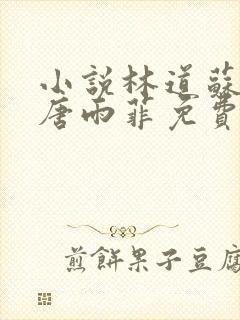 小説林道蘇
唐雨菲免費
煎餅果子豆腐